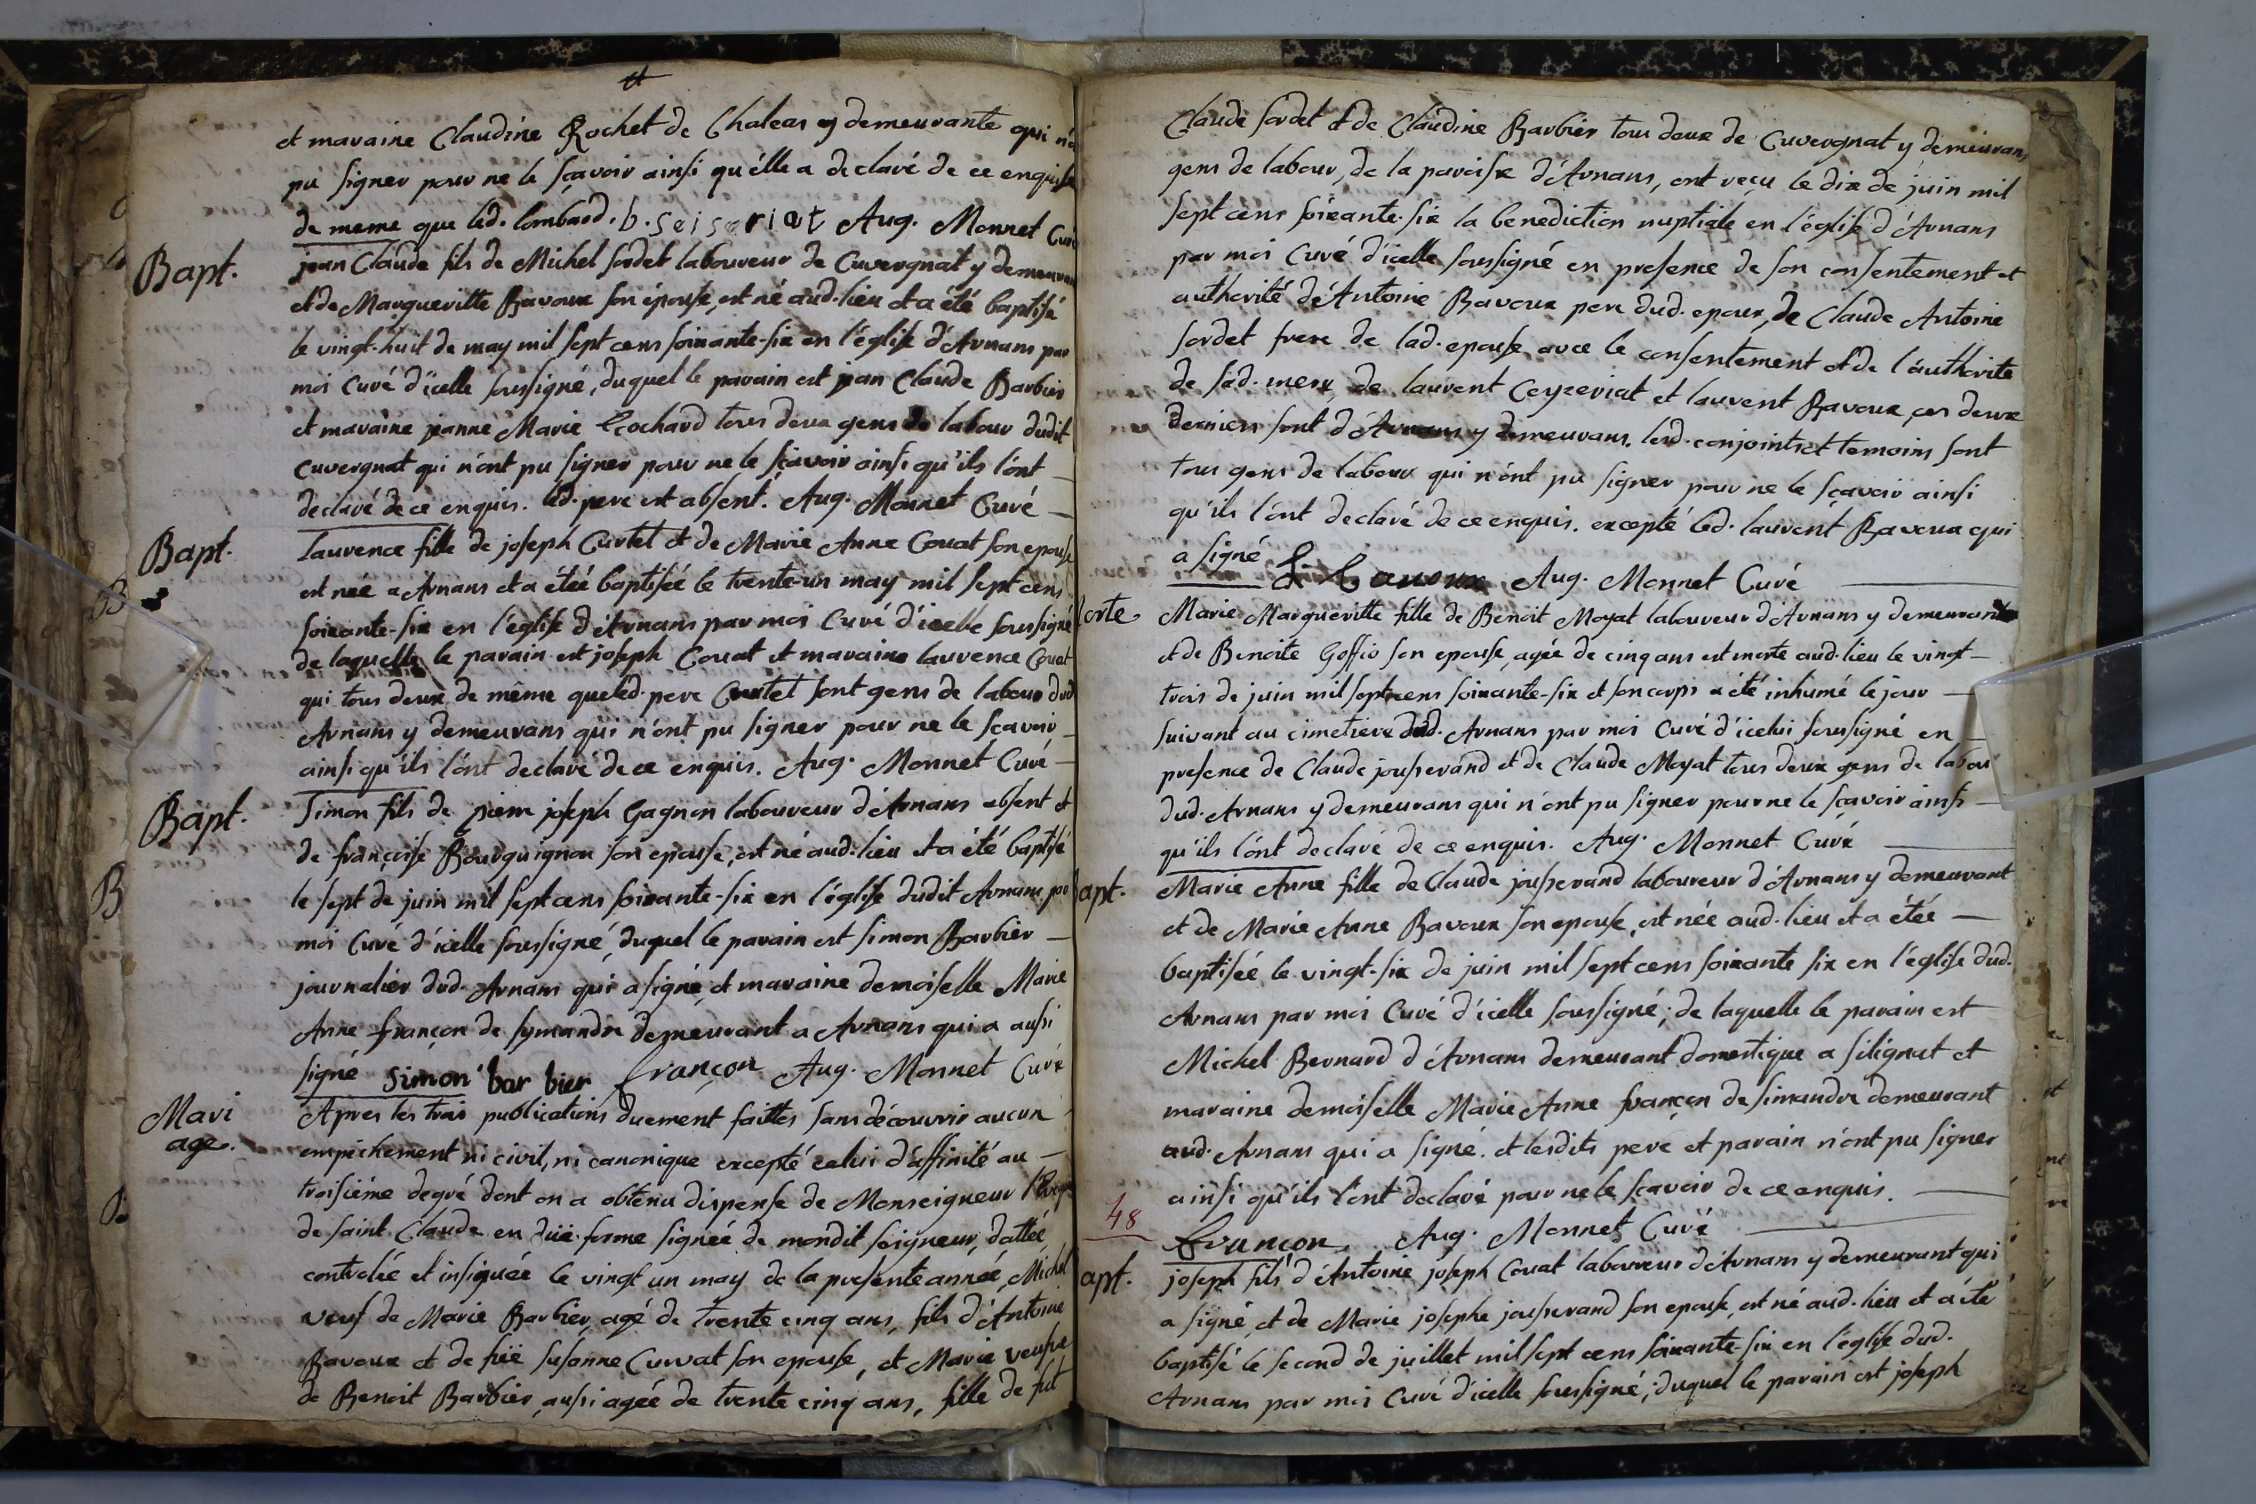 et maraine Claudine Rochet de Chaleas y demeurante qui n'a
pu signer pour ne le sçavoir ainsi qu'élle a declaré de ce enquise
de meme que led. lombard. b. seiseriat Aug. Monnet Curé
Bapt.
jean Claude fils de Michel sordet laboureur de Cuvergnat y demeurant
et de Margueritte Ravoux son épouse, est né aud. lieu et a été baptisé
le vingt-huit de may mil sept cens soixante-six en l'église d'Arnans par
moi Curé d'icelle soussigné, duquel le parain est jean Claude Barbier
et maraine jeanne Marie Cochard tous deux gens de labour dudit
Cuvergnat qui n'ont pu signer pour ne le sçavoir ainsi qu'ils l'ont
declaré de ce enquis. led. pere est absent. Aug. Monnet Curé
Bapt.
Laurence fille de joseph Curtet et de Marie Anne Couat son epouse
est née a Arnans et a étéé baptiséé le trente-un may mil sept cens
soixante-six en l'église d'Arnans par moi Curé d'icelle soussigné
de laquelle le parain est joseph Couat et maraine laurence Couat
qui tous deux de même que led. pere Curtet sont gens de labour dud.
Arnans y demeurans qui n'ont pu signer pour ne le sçavoir
ainsi qu'ils l'ónt declaré de ce enquis. Aug. Monnet Curé
Bapt.
Simon fils de pierre joseph Gagnon laboureur d'Arnans absent et
de françoise Bourguignon son epouse, est né aud. lieu et a été baptisé
le sept de juin mil sept cens soixante-six en l'église dudit Arnans par
moi Curé d'icelle soussigné, duquel le parain est simon Barbier
journalier dud. Arnans qui a signé, et maraine demoiselle Marie
Anne françon de symandre demeurant a Arnans qui a aussi
signé simon bar bier françon Aug. Monnet Curé
Mari
age.
Apres les trois publications duement faittes sans découvrir aucun
empéchement ni civil, ni canonique excepté celui d'affinité au
troisiéme degré dont on a obtenu dispense de Monseigneur l'Eveque
de saint Claude en düe forme signéé de mondit seigneur, dattéé
controléé et insinuéé le vingt un may de la presente année, Michel
veuf de Marie Barbier, agé de trente cinq ans, fils d'Antoine
Ravoux et de füe susanne Curvat son epouse, et Marie veufve
de Benoit Barbier, aussi agéé de trente cinq ans, fille de fut
Claude sordet et de Claudine Barbier tous deux de Cuvergnat y demeurans
gens de labour, de la paroisse d'Arnans, ont reçu le dix de juin mil
sept cens soixante-six la benediction nuptiale en l'église d'Arnans
par moi Curé d'icelle soussigné en presence de son consentement et
authorité d'Antoine Ravoux pere dud. epoux, de Claude Antoine
sordet frere de lad. epouse avec le consentement et de l'authorite
de sad. mere, de laurent Ceyzeriat et laurent Ravoux, ces deux
derniers sont d'Arnans y demeurans. lesd. conjoints et temoins sont
tous gens de labour qui n'ónt pu signer pour ne le sçavoir ainsi
qu'ils l'ónt declaré de ce enquis. excepté led. laurent Ravoux qui
a signé L. Ravoux Aug. Monnet Curé
orte
Marie Margueritte fille de Benoit Moyat laboureur d'Arnans y demeurant
et de Benoite Goffio son epouse, agéé de cinq ans est morte aud. lieu le vingt-
trois de juin mil sept cens soixante-six et son corps a été inhumé le jour
suivant au cimetiere dud. Arnans par moi Curé d'icelui soussigné en
presence de Claude jousserand et de Claude Moyat tous deux gens de labour
dud. Arnans y demeurans qui n'ont pu signer pour ne le sçavoir ainsi
qu'ils l'ónt declaré de ce enquis. Aug. Monnet Curé
apt.
Marie Anne fille de Claude jousserand laboureur d'Arnans y demeurant
et de Marie Anne Ravoux son epouse, est née aud. lieu et a étéé
baptiséé le vingt-six de juin mil sept cens soixante six en l'église dud.
Arnans par moi Curé d'icelle soussigné; de laquelle le parain est
Michel Bernard d'Arnans demeurant domestique a silignat et
maraine demoiselle Marie Anne françon de simandre demeurant
aud. Arnans qui a signé. et lesdits pere et parain n'ont pu signer
ainsi qu'ils l'ont declaré pour ne le sçavoir de ce enquis.
48
françon Aug. Monnet Curé
apt.
joseph fils d'Antoine joseph Couat laboureur d'Arnans y demeurant qui
a signé, et de Marie josephe jousserand son epouse, est né aud. lieu et a été
baptisé le second de juillet mil sept cens soixante-six en l'église dud.
Arnans par moi Curé d'icelle soussigné; duquel le parain est joseph